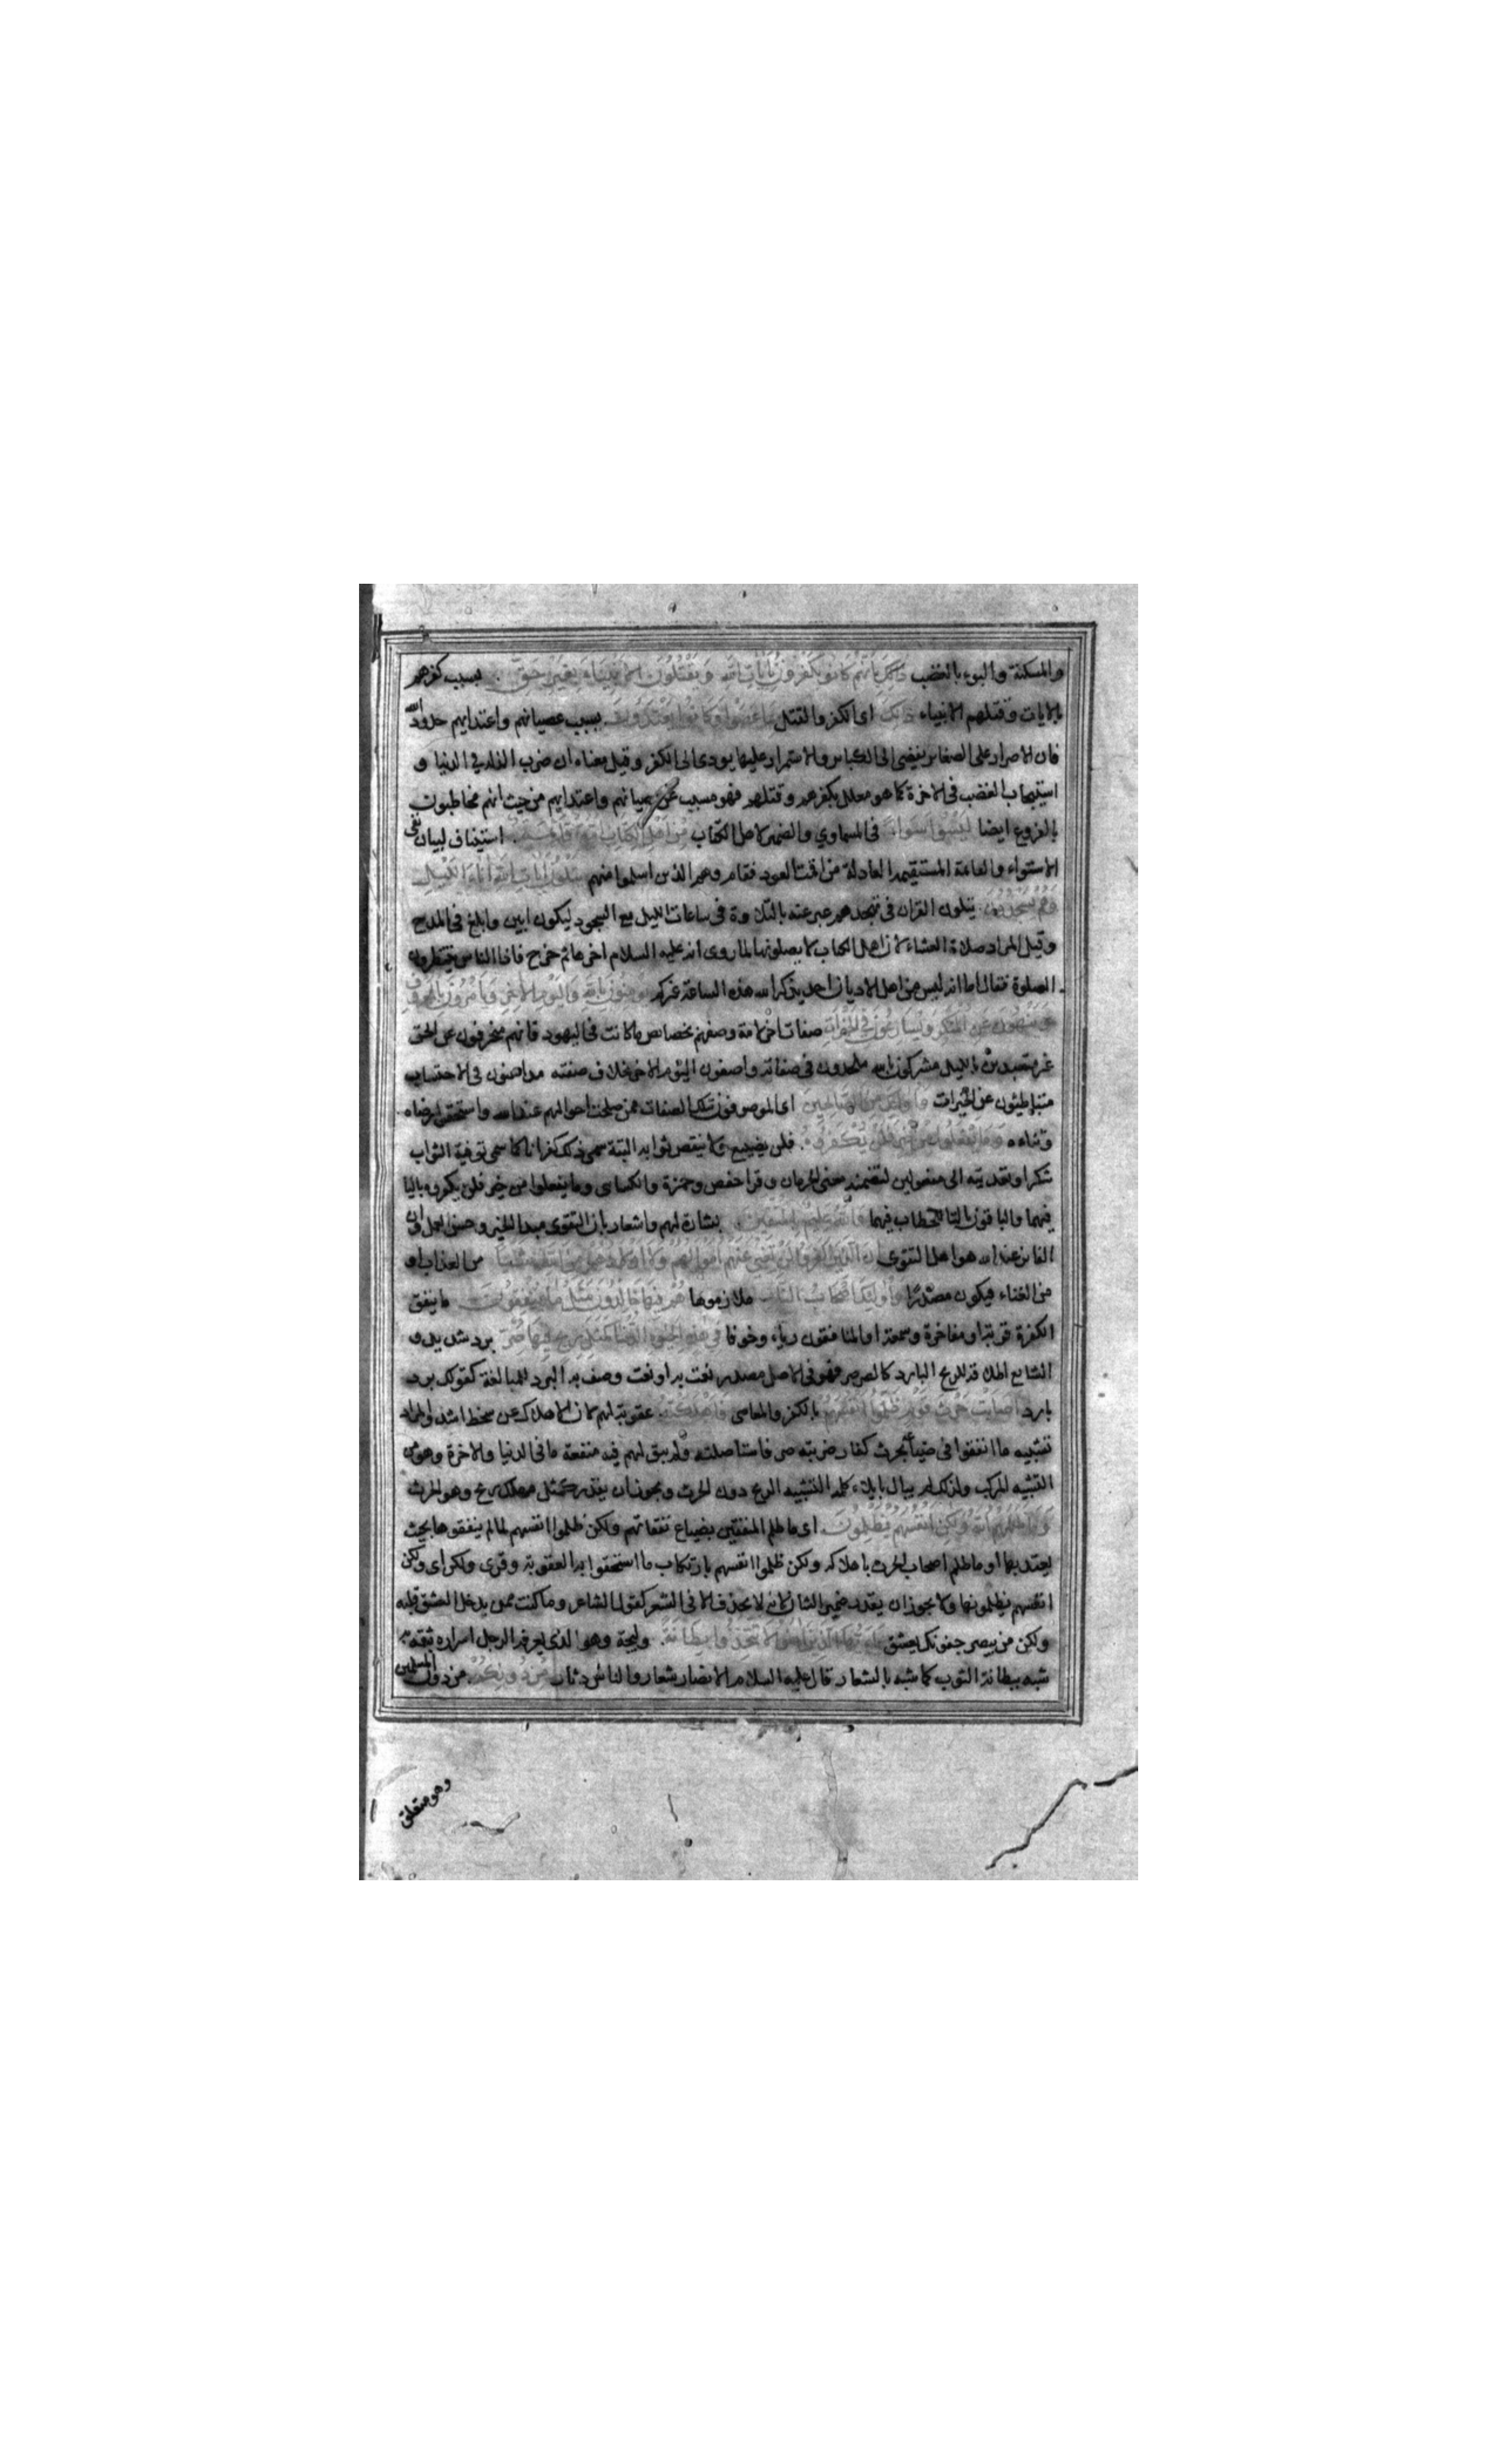 والمسكنة والبوء بالغضب ذلك بانهم كانوا يكفرون بايات الله ويقتلون الانبياء بغير حق بسبب كفرهم
بالايات وقتلهم الانبياء ذلك اى الكفر والقتل بما عصوا وكانوا يعتدون بسبب عصيانهم واعتدايهم حدود الله
فان الاصرار على الصغاير يفضى الى الكباير والاستمرار عليها يودى الى الكفر وقيل معناه ان ضرب الذلة فى الدنيا و
استيجاب الغضب فى الاخرة كما هو معلل بكفرهم وقتلهم فهو مسبب عن عصيانهم واعتدايهم من حيث انهم مخاطبون
بالفروع ايضا ليسوا سواء فى المساوي والضمير لاهل الكتاب من اهل الكتاب امة قائمة استيناف لبيان نفى
الاستواء والقائمة المستقيمة العادلة من اقمت العود فقام وهم الذين اسلموا منهم يتلون ايات الله اناء الليل
وهم يسجدون يتلون القران فى تهجدهم عبر عنه بالتلاوة فى ساعات الليل مع السجود ليكون ابين وابلغ فى المدح
وقيل المراد صلاة العشاء لان اهل الكتاب لا يصلونها لما روى انه عليه السلام اخرها ثم خرج فاذا الناس ينتظرون
الصلوة فقال اما انه ليس من اهل الاديان احد يذكر الله هذه الساعة غيركم يومنون بالله واليوم الاخر ويامرون بالمعروف
وينهون عن المنكر ويسارعون فى الخيرات صفات اخر لامة وصفهم بخصايص ما كانت فى اليهود فانهم منحرفون عن الحق
غير متعبدين بالليل مشركون بالله ملحدون فى صفاته واصفون اليوم الاخر بخلاف صفته مداهنون فى الاحتساب
متباطئون عن الخيرات واولئك من الصالحين اى الموصوفون بتلك الصفات ممن صلحت احوالهم عند الله واستحقوا رضاه
وثناءه وما يفعلوا من خير فلن يكفروه فلن يضيع ولا ينقص ثوابه البتة سمى ذلك كفرانا كما سمى توفية الثواب
شكرا وتعديته الى مفعولين لتضمنه معنى الحرمان وقرا حفص وحمزة والكسائى وما يفعلوا من خير فلن يكفروه بالياء
فيهما والباقون بالتا للخطاب فيهما والله عليم بالمتقين بشارة لهم واشعار بان التقوى مبدا الخير وحسن العمل وان
الفائز عند الله هو اهل التقوى ان الذين كفروا لن تغنى عنهم اموالهم ولا اولادهم من الله شيئا من العذاب او
من الغناء فيكون مصدرا واولئك اصحاب النار ملازموها هم فيها خالدون مثل ما ينفقون ما ينفق
الكفرة قربة او مفاخرة وسمعة او المنافقون رياء وخوفا فى هذه الحيوة الدنيا كمثل ريح فيها صر برد شديد و
الشايع اطلاقه للريح البارد كالصرصر فهو فى الاصل مصدر نعت به او نعت وصف به البرد للمبالغة كقولك برد
بارد اصابت حرث قوم ظلموا انفسهم بالكفر والمعاصى فاهلكته عقوبة لهم لان الاهلاك عن سخط اشد والمراد
تشبيه ما انفقوا فى ضياعه بحرث كفار ضربته صر فاستاصلته ولم يبق لهم فيه منفعة ما فى الدنيا والاخرة وهو من
التشبيه المركب ولذلك لم يبال بايلاء كلمة التشبيه الريح دون الحرث ويجوز ان يقدر كمثل مهلك ريح وهو الحرث
وما ظلمهم الله ولكن انفسهم يظلمون اى ما ظلم المنفقين بضياع نفقاتهم ولكن ظلموا انفسهم لما لم ينفقوها بحيث
يعتد بها او ما ظلم اصحاب الحرث باهلاكه ولكن ظلموا انفسهم بارتكاب ما استحقوا به العقوبة وقرى ولكن اى ولكن
انفسهم يظلمونها ولا يجوز ان يقدر ضمير الشان لانه لا يحذف الا فى الشعر كقول الشاعر وما كنت ممن يدخل العشق قلبه
ولكن من يبصر جفونك يعشق يا ايها الذين امنوا لا تتخذوا بطانة وليجة وهو الذى يعرفه الرجل اسراره ثقة به
شبه ببطانة الثوب كما شبه بالشعار قال عليه السلام الانصار شعار والناس دثار من دونكم من دون المسلمين
وهو متعلق